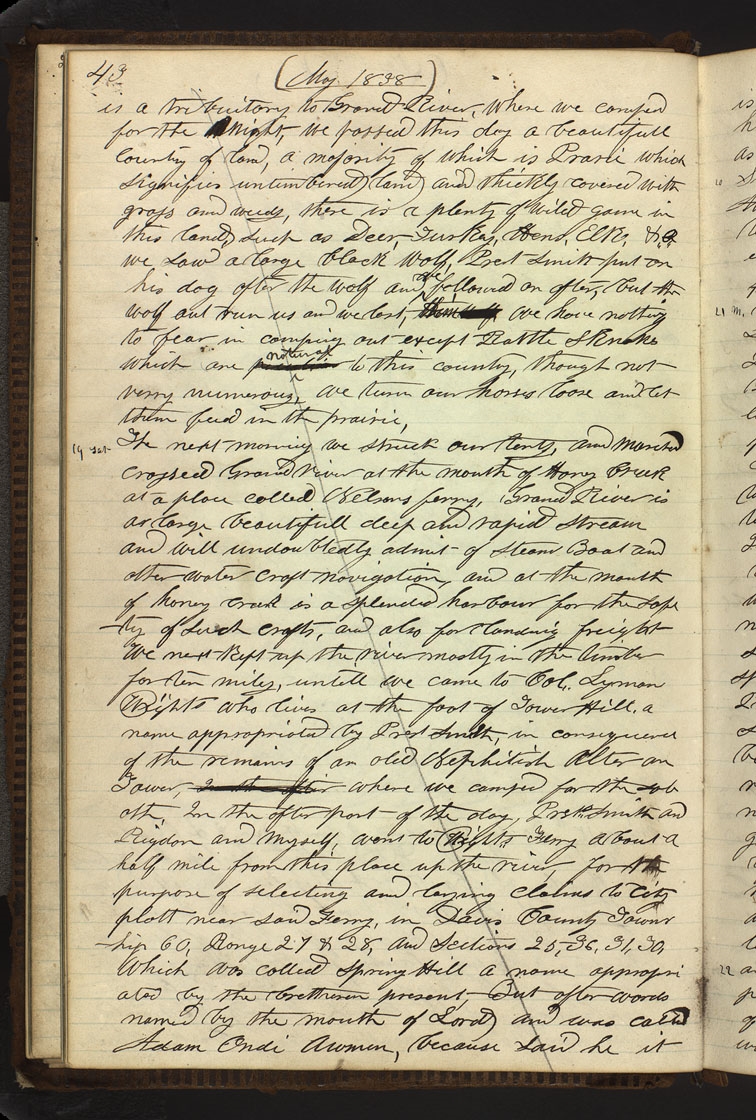 43
(May 1838)
is a tributary to Grand River, Where we camped
for the night, we passed this day a beautifull
Country of land, a majority of which is Prarie which
signifies untimbered land and thickly covered with
grass and weeds, there is a plenty of wild game in
this land, such as Deer, Turkey, Hens, Elk, &c.
we saw a large black wolf, Prest Smith put on
his dog after the wolf and we followed on after, but the
wolf out run us and we lost, him We have nothing
to fear in camping out except Rattle Snakes
which are natural to this country, though not
verry numerous, We turn our horses loose and let
them feed in the prairie,
19 Sat. The next morning we struck our tents, and marched
crossed Grand River at the mouth of Honey Creek
at a place called Nelsons ferry, Grand River is
a large beautifull deep and rapid stream
and will undoubtedly admit of Steam Boat and
other water craft navigation, and at the mouth
of honey creek is a splended harbour for the safe
-ty of such crafts, and also for landing freight
We next kept up the river mostly in the timber
for ten miles, untill we came to Col. Lyman
Wights who lives at the foot of Tower Hill. a
name appropriated by Prest Smith, in consequence
of the remains of an old Nephitish Alter an
Tower, where we camped for the sab
ath, In the after part of the day, Prests. Smith and
Rigdon and myself, went to Wights Ferry about a
half mile from this place up the river, for the
purpose of selecting and laying claims to City
plott near said Ferry, in Davis County Towns
-hip 60, Range 27 & 28, and Sections 25, 36, 31, 30,
Which was called Spring Hill a name appropri
ated by the bretheren present, But after wards
named by the mouth of Lord and was called
Adam Ondi Awmen, because said he it
21 M.
22